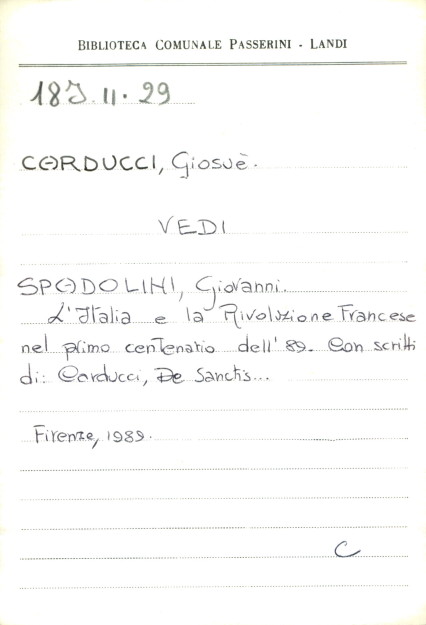 BIBLIOTECA COMUNALE PASSERINI - LANDI
18J.II.29
CARDUCCI, Giosuè.
VEDI
SPADOLINI, Giovanni.
L'Italia e la Rivoluzione Francese
nel primo centenario dell'89. Con scritti
di: Carducci, De Sanctis...
Firenze, 1989.
C